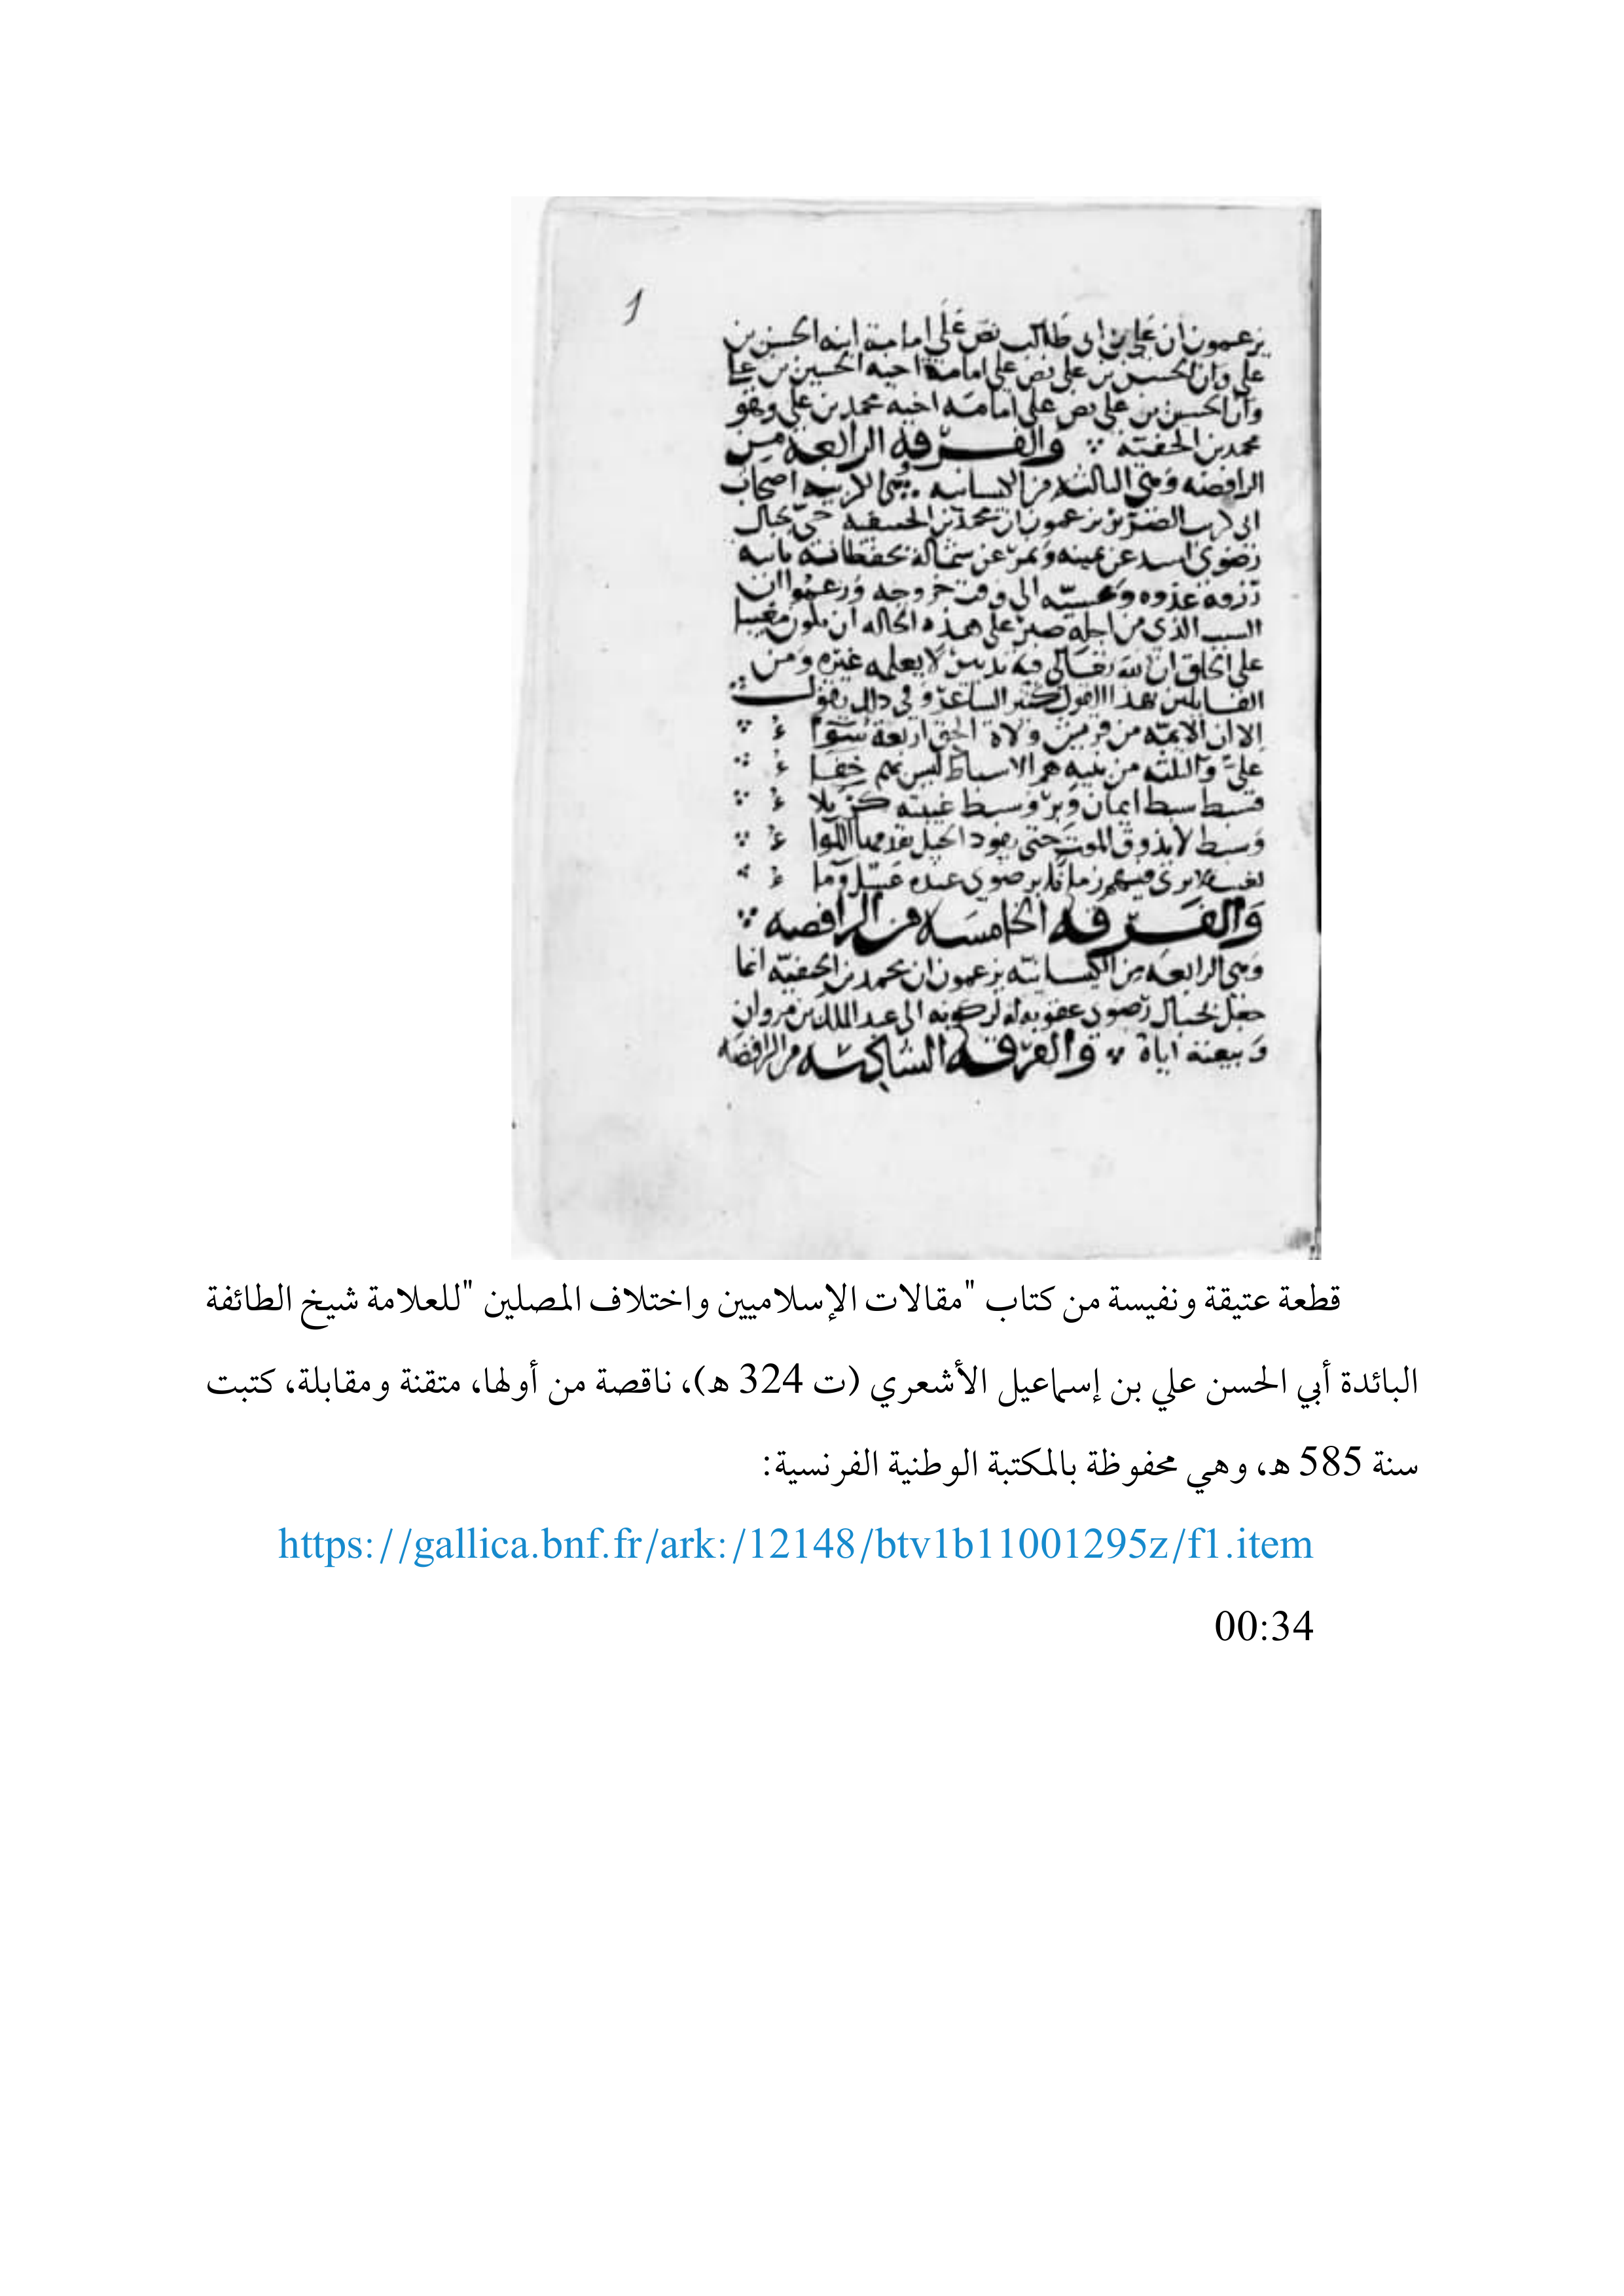 1
يزعمون ان علي بن ابى طالب نص على امامة ابنه الحسن بن
على وان الحسن بن على نص على امامة اخيه الحسين بن على
وان الحسين بن على نص على امامة اخيه محمد بن على وهو
محمد بن الحنفية والفرقة الرابعة من
الرافضة وهي الثالثة من الكيسانية وهي الكربية اصحاب
ابى كرب الضرير يزعمون ان محمد بن الحنفية حي بجبال
رضوى اسد عن يمينه ونمر عن شماله يحفظانه ياتيه
رزقه غدوه وعشية الى وقت خروجه وزعموا ان
السبب الذي من اجله صبر على هذه الحاله ان يكون مغيبا
على الخلق ان لله تعالى فيه تدبير لا يعلمه غيره ومن
القايلين بهذا القول كثير الشاعر وفي ذلك يقول
الا ان الايمة من قريش ولاة الحق اربعة سوآ
علي والثلثة من بنيه هم الاسباط ليس بهم خفا
فسبط سبط ايمان وبر وسبط غيبته كربلا
وسبط لا يذوق الموت حتى يقود الخيل يقدمها اللوا
تغيب لا يرى فيهم زمانا برضوى عنده عسل وما
والفرقة الخامسة من الرافضة
وهي الرابعة من الكيسانية يزعمون ان محمد بن الحنفية انما
جعل بجبال رضوى عقوبة له لركونه الى عبد الملك بن مروان
وبيعته اياه والفرقة السادسة من الرافضة
قطعة عتيقة ونفيسة من كتاب "مقالات الإسلاميين واختلاف المصلين "للعلامة شيخ الطائفة
البائدة أبي الحسن علي بن إسماعيل الأشعري (ت 324 ه)، ناقصة من أولها، متقنة ومقابلة، كتبت
سنة 585 ه، وهي محفوظة بالمكتبة الوطنية الفرنسية:
https://gallica.bnf.fr/ark:/12148/btv1b11001295z/f1.item
00:34